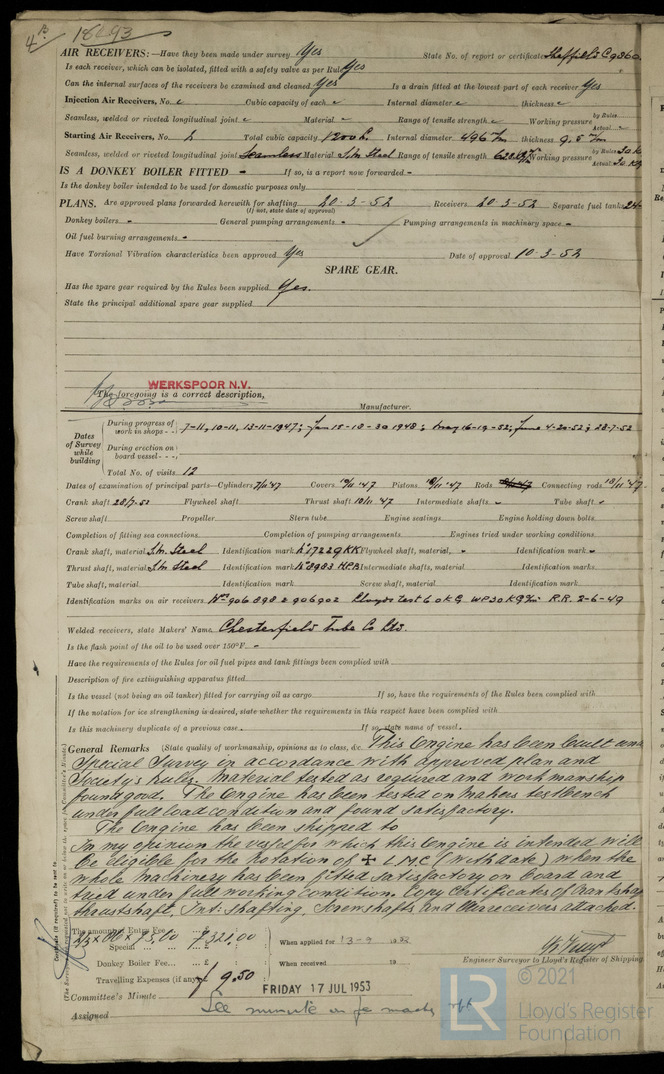 4 B 18493
AIR RECEIVERS:—Have they been made under survey Yes State No. of report or certificate Sheffield C 9360
Is each receiver, which can be isolated, fitted with a safety valve as per Rule Yes
Can the internal surfaces of the receivers be examined and cleaned Yes Is a drain fitted at the lowest part of each receiver Yes
Injection Air Receivers, No. Cubic capacity of each Internal diameter thickness by Rules
Seamless, welded or riveted longitudinal joint Material Range of tensile strength Working pressure Actual
Starting Air Receivers, No. 2 Total cubic capacity 1200 L. Internal diameter 496 m/m thickness 9.5 m/m
Seamless, welded or riveted longitudinal joint Seamless Material S.M. Steel Range of tensile strength Working pressure by Rules 30 K Actual 30 KG
IS A DONKEY BOILER FITTED - If so, is a report now forwarded -
Is the donkey boiler intended to be used for domestic purposes only
PLANS. Are approved plans forwarded herewith for shafting 20-3-52 Receivers 20-3-52 Separate fuel tanks 24-
(If not, state date of approval)
Donkey boilers - General pumping arrangements - Pumping arrangements in machinery space -
Oil fuel burning arrangements -
Have Torsional Vibration characteristics been approved Yes Date of approval 10-3-52
SPARE GEAR.
Has the spare gear required by the Rules been supplied Yes.
State the principal additional spare gear supplied
WERKSPOOR N.V.
The foregoing is a correct description,
Manufacturer.
Dates of Survey while building
During progress of work in shops - - 7-11, 10-11, 13-11-1947; Jan 15-18-30 1948; May 16-19-52; June 4-20-52; 28-7-52
During erection on board vessel - - -
Total No. of visits 12
Dates of examination of principal parts—Cylinders 7/11 47 Covers 19/11 '47 Pistons 18/11 '47 Rods Connecting rods 18/11 '47
Crank shaft 28/7-52 Flywheel shaft Thrust shaft 10/11 '47 Intermediate shafts - Tube shaft -
Screw shaft Propeller Stern tube Engine seatings Engine holding down bolts
Completion of fitting sea connections Completion of pumping arrangements Engines tried under working conditions
Crank shaft, material S.M. Steel Identification mark No 17229 KK Flywheel shaft, material, - Identification mark -
Thrust shaft, material S.M. Steel Identification mark No 8983 HPB Intermediate shafts, material Identification marks
Tube shaft, material Identification mark Screw shaft, material Identification mark
Identification marks on air receivers Nos 906898 2 906902 Lloyds Test 60 KG WP 30 KG R.R. 2-6-49
Welded receivers, state Makers' Name Chesterfield Tube Co Ltd.
Is the flash point of the oil to be used over 150°F. -
Have the requirements of the Rules for oil fuel pipes and tank fittings been complied with
Description of fire extinguishing apparatus fitted
Is the vessel (not being an oil tanker) fitted for carrying oil as cargo If so, have the requirements of the Rules been complied with
If the notation for ice strengthening is desired, state whether the requirements in this respect have been complied with
Is this machinery duplicate of a previous case If so, state name of vessel
General Remarks (State quality of workmanship, opinions as to class, &c. This Engine has been built under
Special Survey in accordance with approved plan and
Society's rules. Material tested as required and workmanship
found good. The Engine has been tested on Makers testbench
under full load condition and found satisfactory.
The Engine has been shipped to
In my opinion the vessel for which this Engine is intended will
be eligible for the notation of ✠ L.M.C. (with date) when the
whole machinery has been fitted satisfactory on board and
tried under full working condition. Copy certificates of crankshaft
thrustshaft, Int: shafting, Screwshafts and Airreceivers attached.
The amount of Entry Fee
Special
Donkey Boiler Fee
Travelling Expenses (if any) £ 9.50
When applied for 13-9 19
When received 19
Engineer Surveyor to Lloyd's Register of Shipping.
Committee's Minute FRIDAY 17 JUL 1953
Assigned See minute on
© 2021
LR Lloyd's Register
Foundation